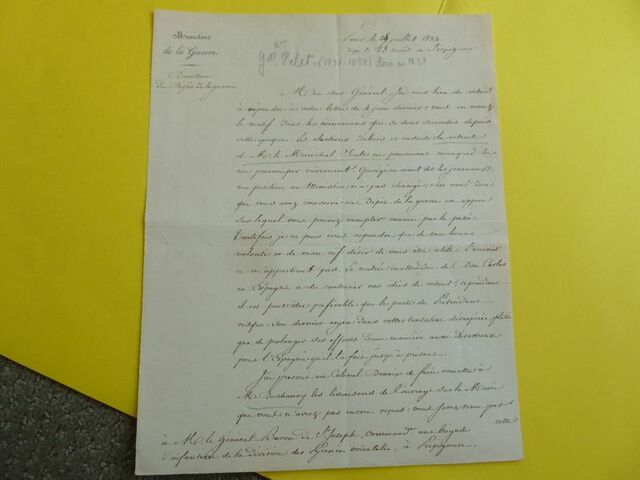 Ministère
de la Guerre.
Direction
du Dépôt de la guerre
Paris, le 29 juillet 1834
reçu le 23 août à Perpignan
Gal Pelet (1777-1858)
Mon cher Général, J'ai mis bien du retard
à répondre à votre lettre du 4 juin dernier; vous en verrez
le motif dans les évènemens qui se sont succédés depuis
cette époque. Les élections d'abord et ensuite la retraite
de M. le Maréchal Soult ne pouvaient manquer de
me préoccuper vivement. Quoiqu'en aient dit les journaux,
ma position au Ministère n'a pas changé, c'est vous dire
que vous avez conservé au Dépôt de la guerre un appui
sur lequel vous pouvez compter comme par le passé.
Toutefois je ne puis vous répondre que de ma bonne
volonté et de mon vif désir de vous être utile. L'avenir
ne m'appartient pas. La rentrée inattendue de Don Carlos
en Espagne a dû contrarier vos idées de retour; cependant
il est peut-être préférable que le parti du Prétendant
risque son dernier enjeu dans cette tentative désespérée plutôt
que de prolonger des efforts d'une manière aussi désastreuse
pour l'Espagne qu'il l'a fait jusqu'à présent.
J'ai prescrit au Colonel de faire remettre à
M. les livraisons de l'ouvrage sur la Morée
que vous n'aviez pas encore reçues; vous ferez tenir par
cette
à M. le Général Baron de St Joseph, commandt une brigade
d'infanterie de la division des Pyrénées orientales, à Perpignan.